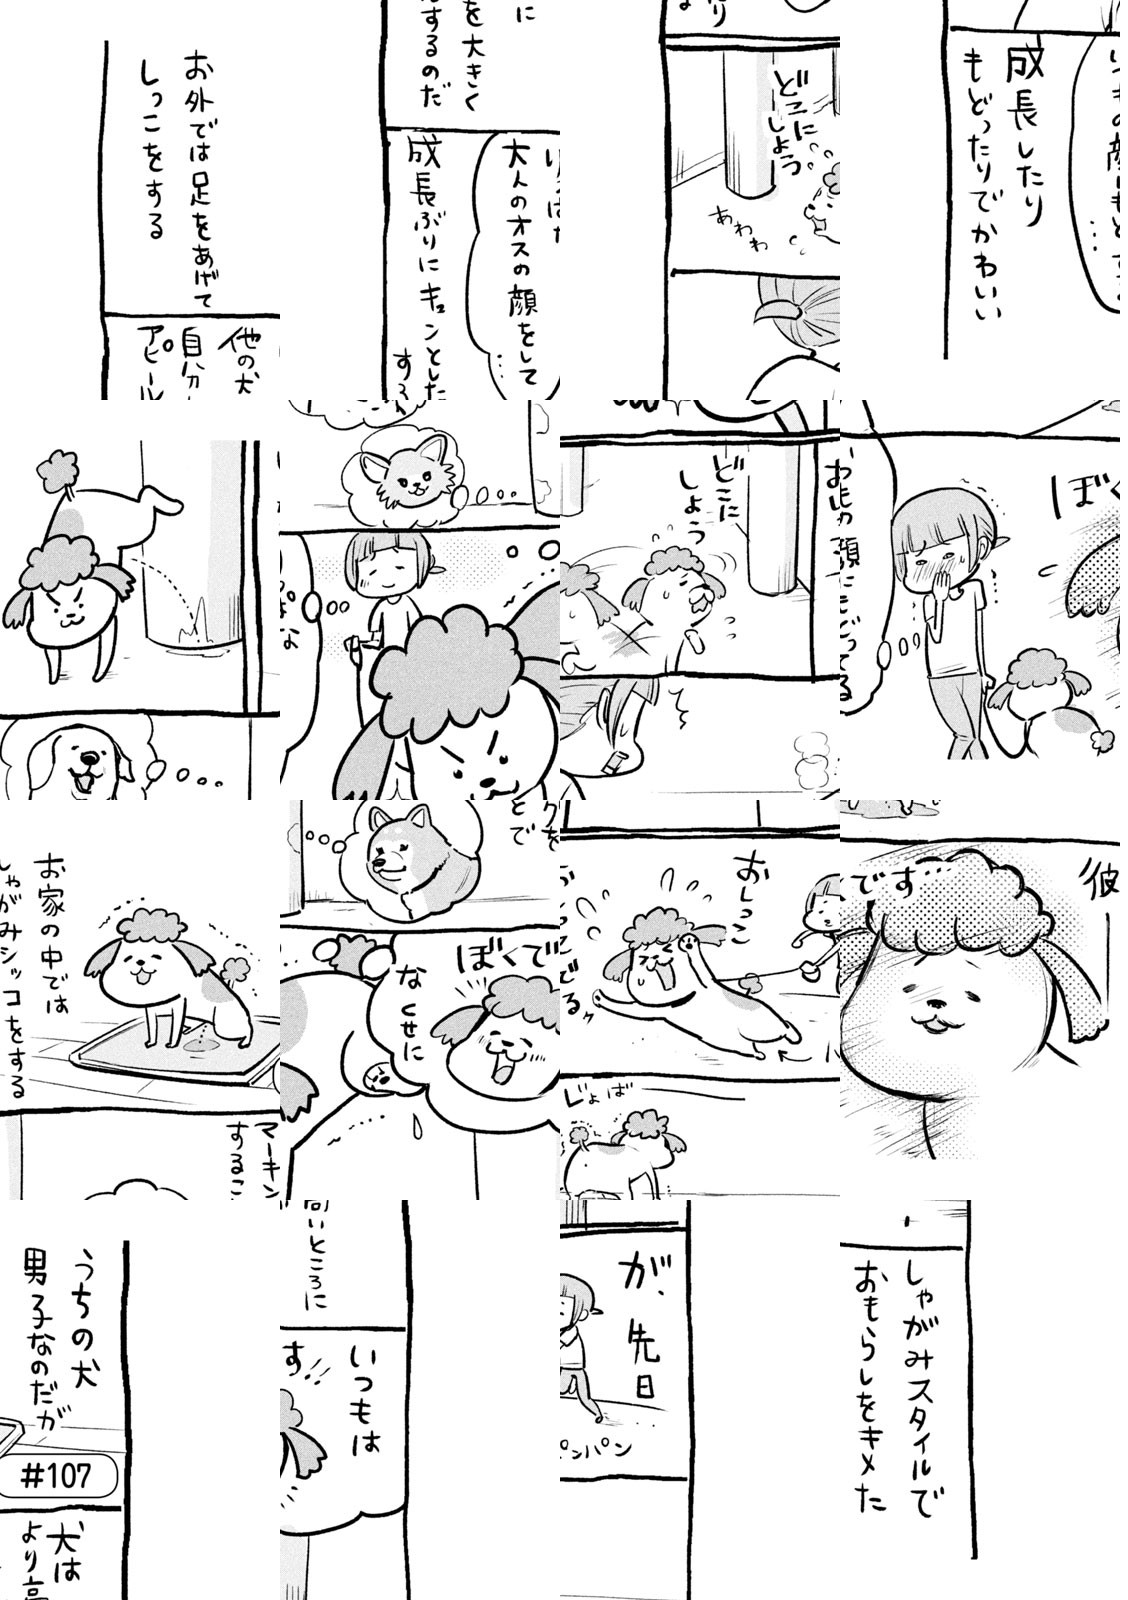 うちの犬
男子なのだが
#107
お家の中では
しゃがみシッコをする
お外では足をあげて
しっこをする
犬は
より高いところに
マーキングを
することで
他の犬に
自分を大きく
アピールするのだ
いつもは
ぼくです!!
なくせに
大人のオスの顔をして…
成長ぶりにキュンとしたり
が、先日
パンパン
おしっこ
でるッ
どこに
しよう
どこに
しよう
あわわ
じょば
しゃがみスタイルで
おもらしをキメた
彼
ぼく
です…
いつもの顔にもどってる…
成長したり
もどったりでかわいい